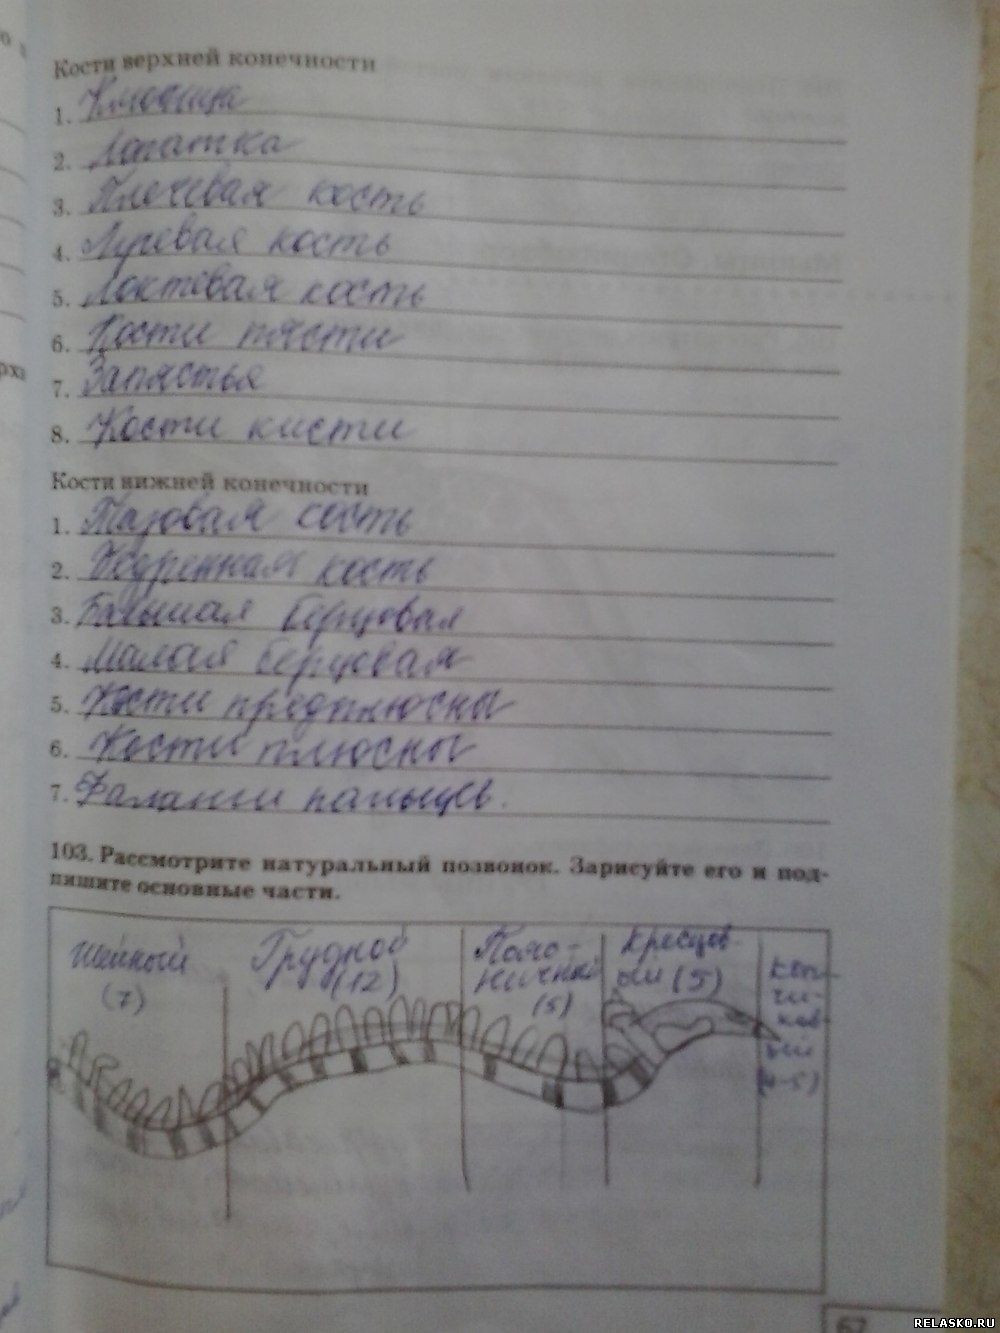 Кости верхней конечности
1. Ключица
2. Лопатка
3. Плечевая кость
4. Лучевая кость
5. Локтевая кость
6. Кости пясти
7. Запястья
8. Кости кисти
Кости нижней конечности
1. Тазовая кость
2. Бедренная кость
3. Большая берцовая
4. Малая берцовая
5. Кости предплюсны
6. Кости плюсны
7. Фаланги пальцев.
103. Рассмотрите натуральный позвонок. Зарисуйте его и под-
пишите основные части.
Шейный
(7)
Грудной
(12)
Пояс-
ничный
(5)
Кресцов
ый (5)
Коп-
чи-
ков-
ый
(4-5)
62
RELASKO.RU